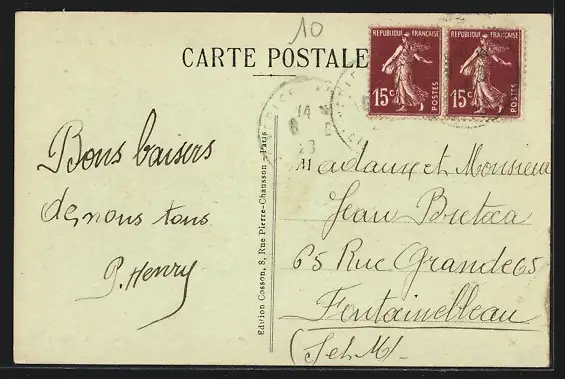 10
CARTE POSTALE
REPUBLIQUE FRANÇAISE
15c
POSTES
REPUBLIQUE FRANÇAISE
15c
POSTES
14
6
23
Bons baisers
de nous tous
P. Henry
Edition Cosson, 8, Rue Pierre-Chausson - Paris
Madame et Monsieur
Jean
65 Rue Grande 65
Fontainebleau
(S et M)